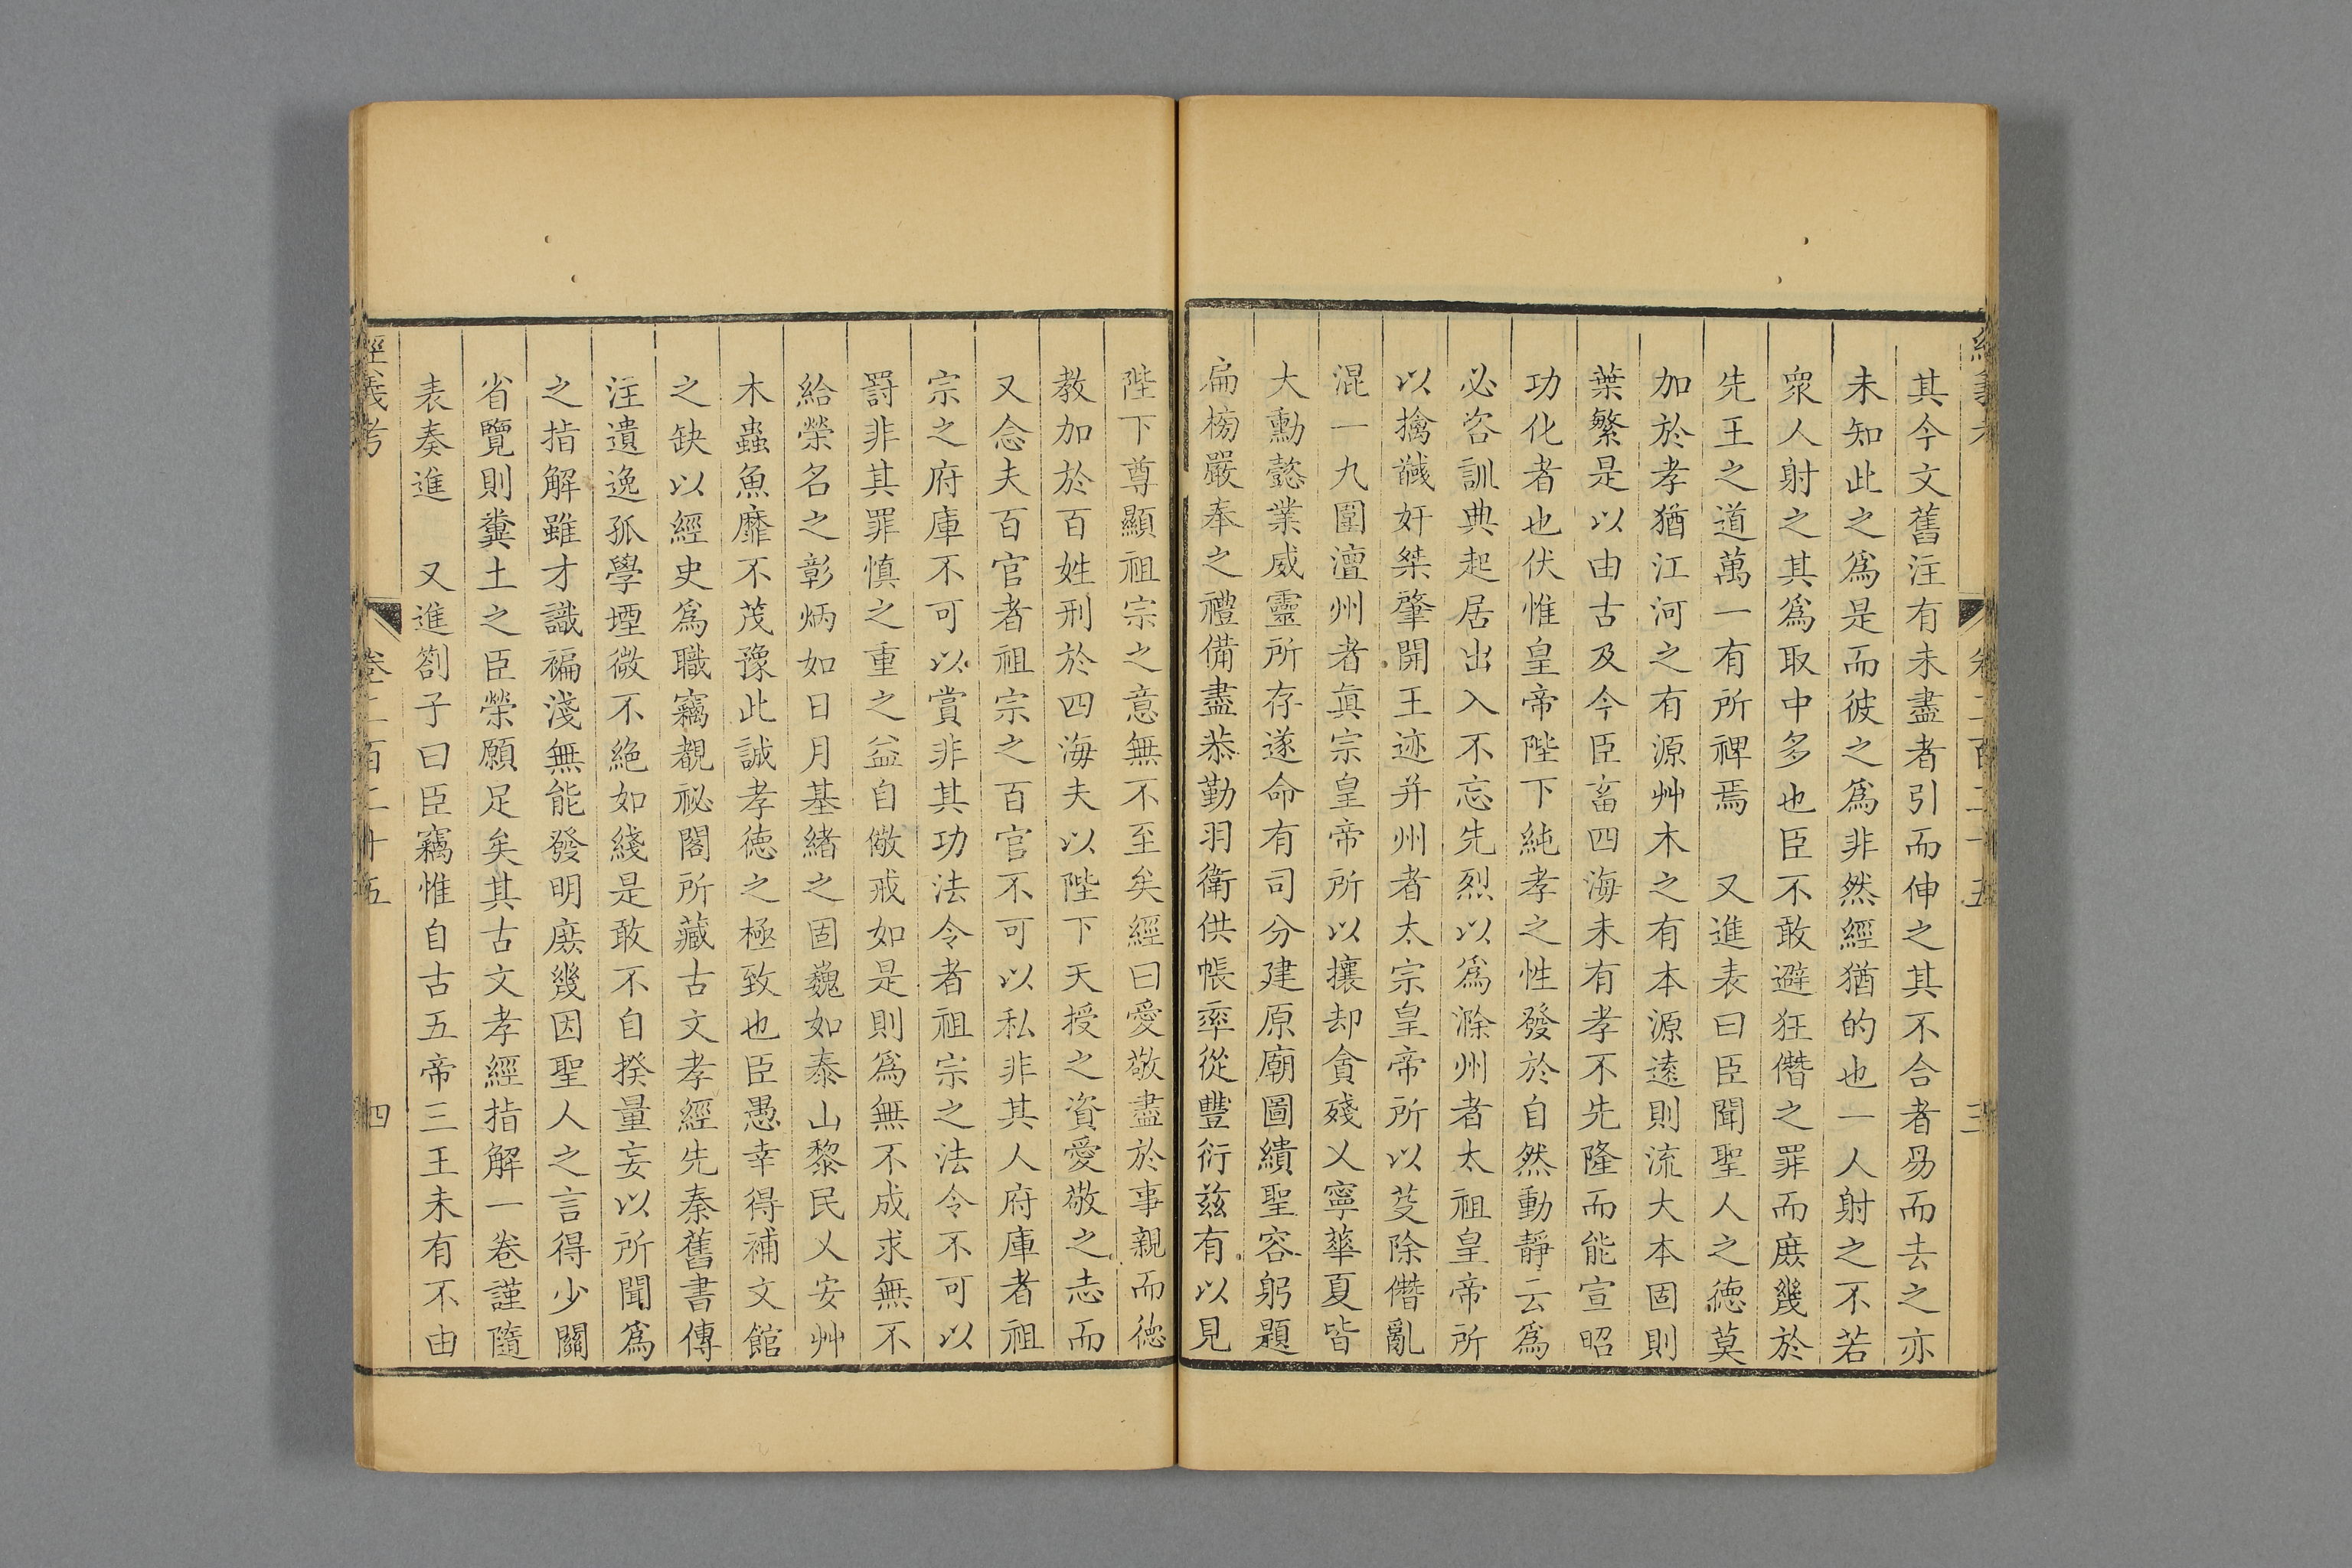 經義考
卷二百二十五
三
其今文舊注有未盡者引而伸之其不合者昜而去之亦
未知此之爲是而彼之爲非然經猶的也一人射之不若
衆人射之其爲取中多也臣不敢避狂僭之罪而庻幾於
先王之道萬一有所裨焉　又進表曰臣聞聖人之徳莫
加於孝猶江河之有源艸木之有本源逺則流大本固則
葉繁是以由古及今臣畜四海未有孝不先隆而能宣昭
功化者也伏惟皇帝陛下純孝之性發於自然動靜云爲
必咨訓典起居出入不忘先烈以爲滁州者太祖皇帝所
以擒馘奸桀肇開王迹并州者太宗皇帝所以芟除僭亂
混一九圍澶州者眞宗皇帝所以攘却貪殘乂寧華夏皆
大勳懿業威靈所存遂命有司分建原廟圖繢聖容躬題
扁榜嚴奉之禮備盡恭勤羽衛供帳率從豐衍兹有以見
陛下尊顯祖宗之意無不至矣經曰愛敬盡於事親而徳
教加於百姓刑於四海夫以陛下天授之資愛敬之志而
又念夫百官者祖宗之百官不可以私非其人府庫者祖
宗之府庫不可以賞非其功法令者祖宗之法令不可以
罸非其罪慎之重之益自儆戒如是則爲無不成求無不
給榮名之彰炳如日月基緒之固巍如泰山黎民乂安艸
木蟲魚靡不茂豫此誠孝徳之極致也臣愚幸得補文館
之缺以經史爲職竊覩祕閣所藏古文孝經先秦舊書傳
注遺逸孤學堙微不絶如綫是敢不自揆量妄以所聞爲
之指解雖才識褊淺無能發明庻幾因聖人之言得少關
省覽則糞土之臣榮願足矣其古文孝經指解一卷謹隨
表奏進　又進劄子曰臣竊惟自古五帝三王未有不由
經義考
卷二百二十五
四